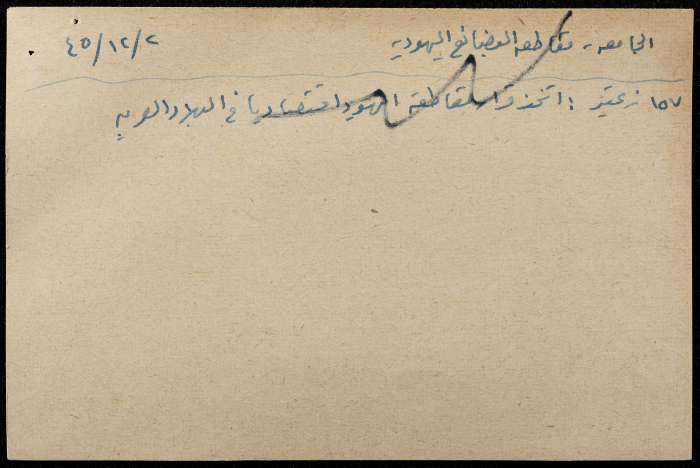 الجامعه - مقاطعه البضائع اليهوديه ٤٥/١٢/٢
١٥٧ زعيتر : اتخذ قرار مقاطعة اليهود اقتصاديا في البلاد العربيه